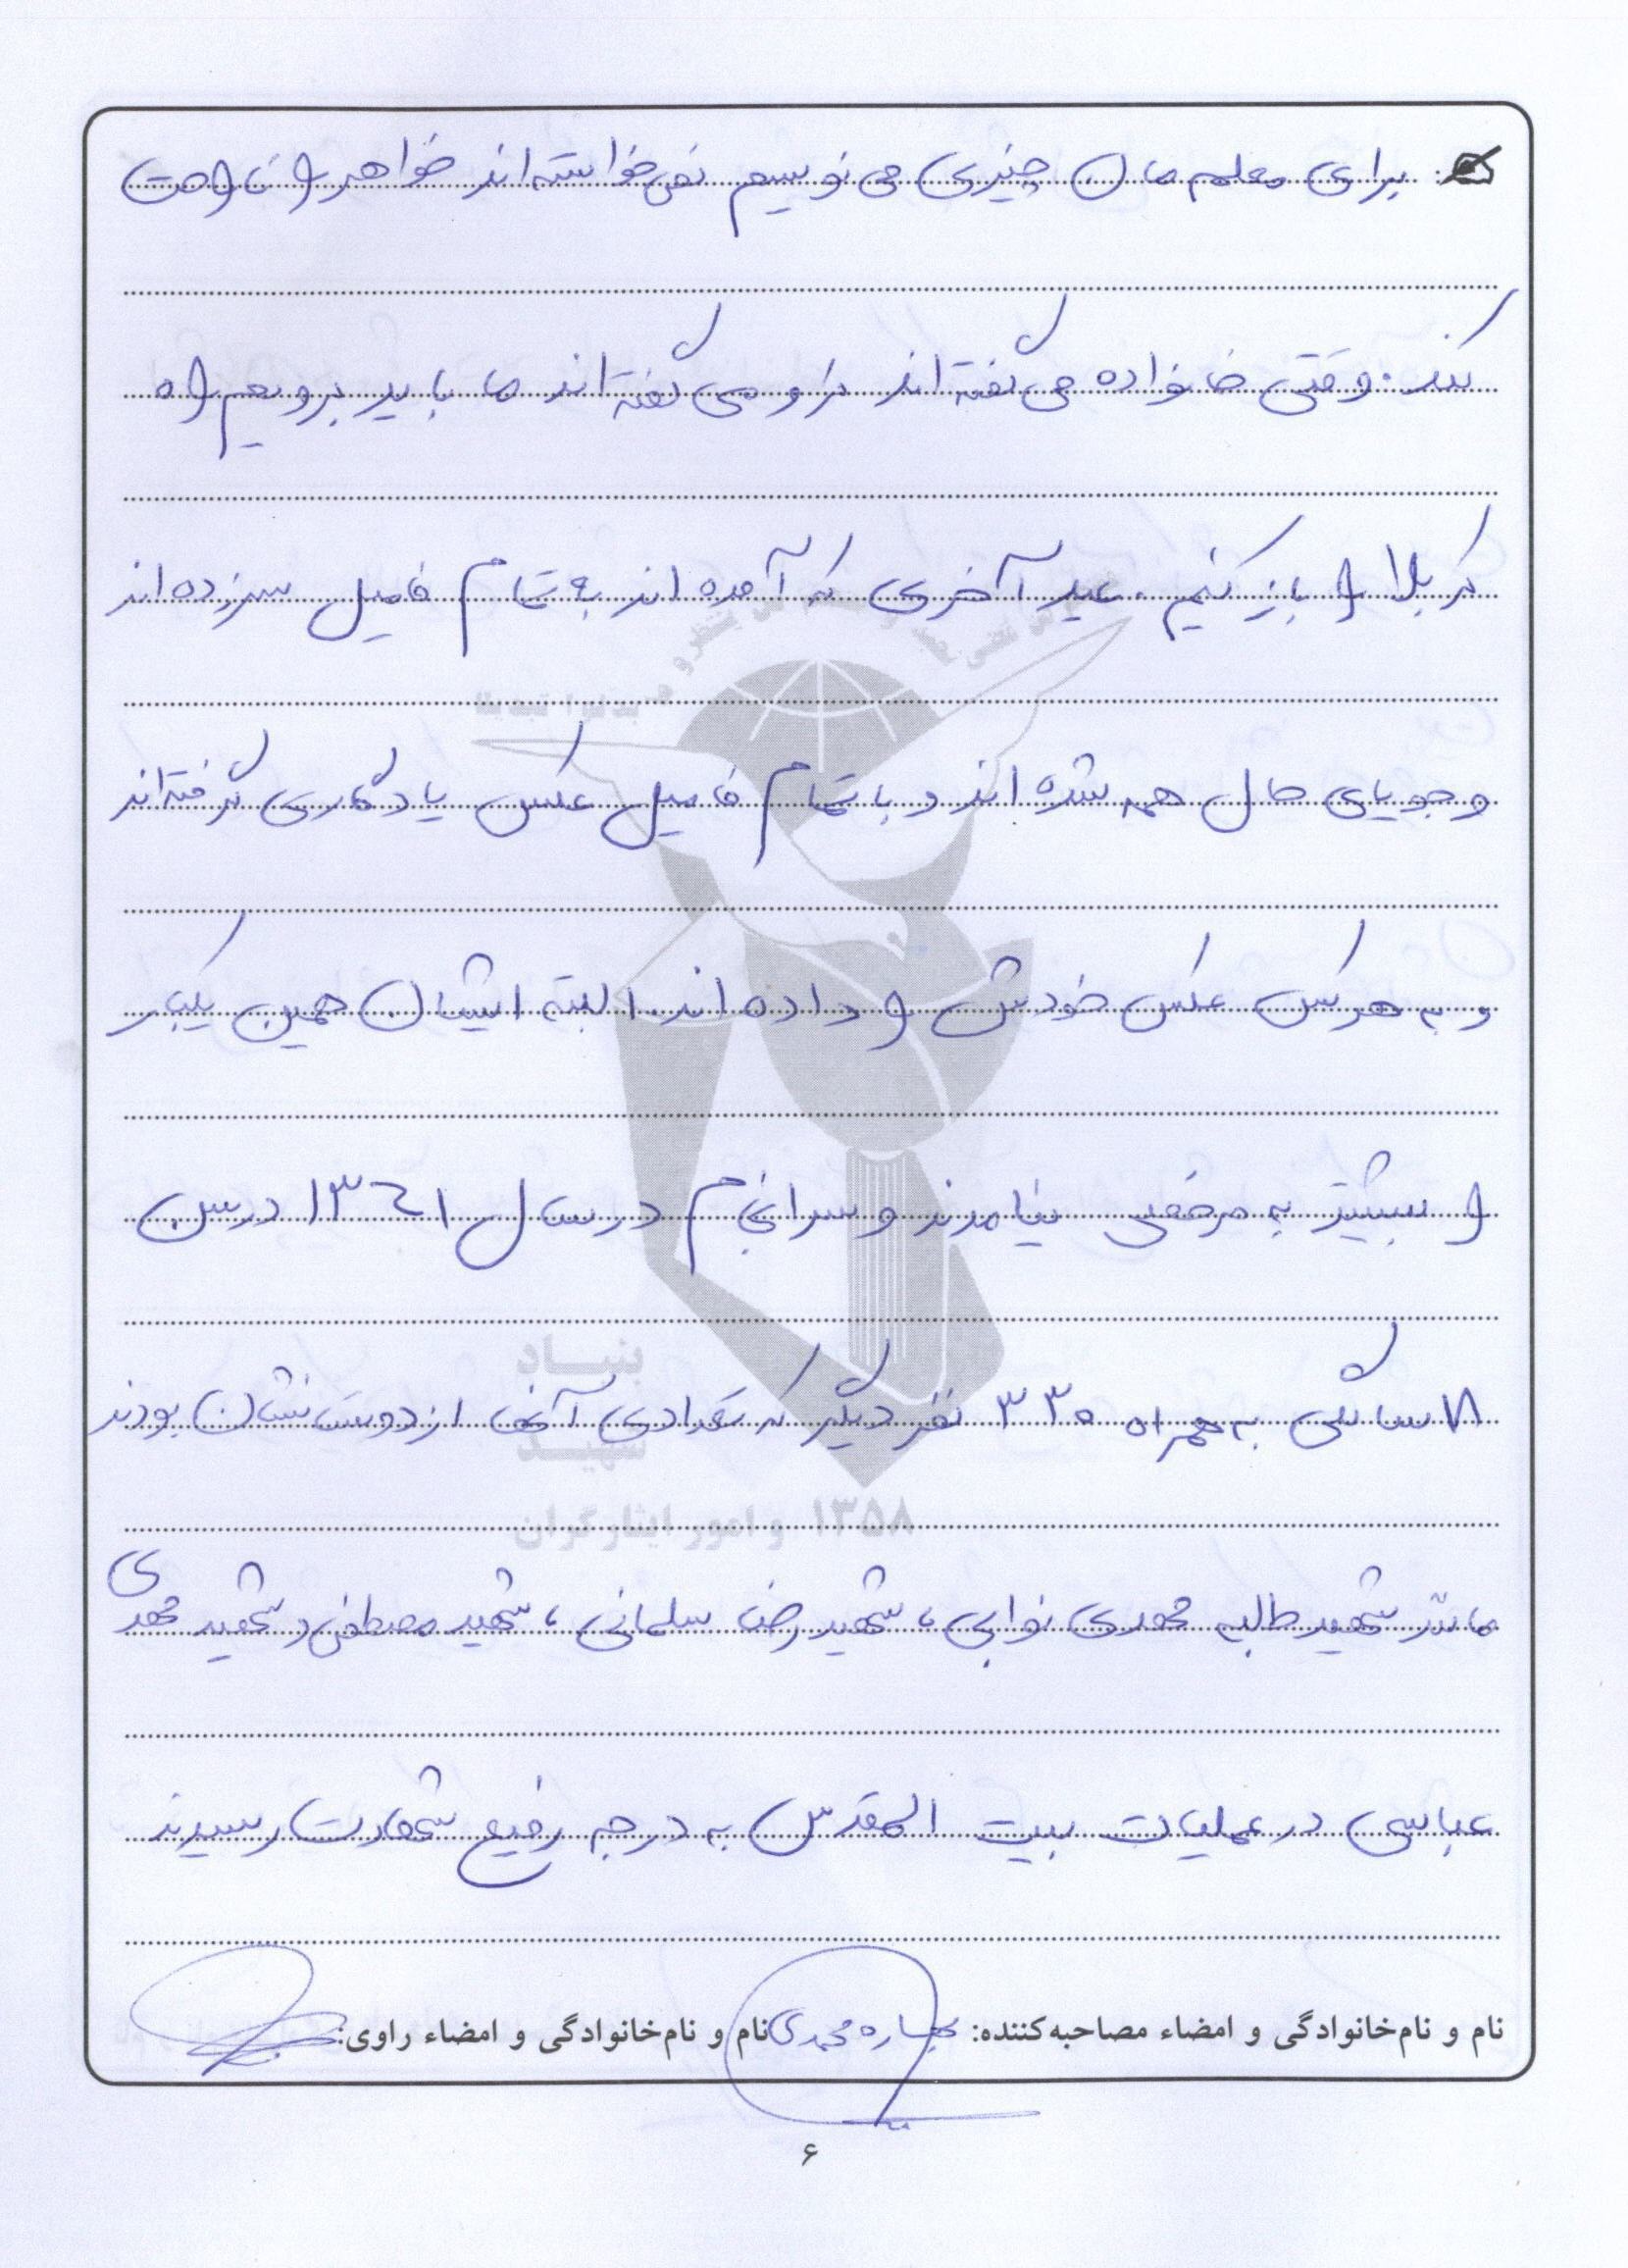 برای معلم مان چیزی می نویسم نمی خواسته اند خواهر را ناراحت
کنند. وقتی خانواده می گفته اند نرو می گفته اند ما باید برویم راه
کربلا را باز کنیم. عید آخری که آمده اند به تمام فامیل سرزده اند
و جویای حال همه شده اند و با تمام فامیل عکس یادگاری گرفته اند
و به هرکس عکس خودش را داده اند. البته ایشان همین یکبار
را بیشتر به مرخصی نیامدند و سرانجام در سال ۱۳۶۱ در سن
۱۸ سالگی به همراه ۳۳۰ نفر دیگر که تعدادی آنها از دوستانشان بودند
مانند شهید طالب محمدی نوابی، شهید رضا سلمانی، شهید مصطفی و شهید مهدی
عباسی در عملیات بیت المقدس به درجه رفیع شهادت رسیدند
نام و نام‌خانوادگی و امضاء مصاحبه‌کننده: محمدی نام و نام‌خانوادگی و امضاء راوی:
بنیاد
شهید
۱۳۵۸ و امور ایثارگران
۶